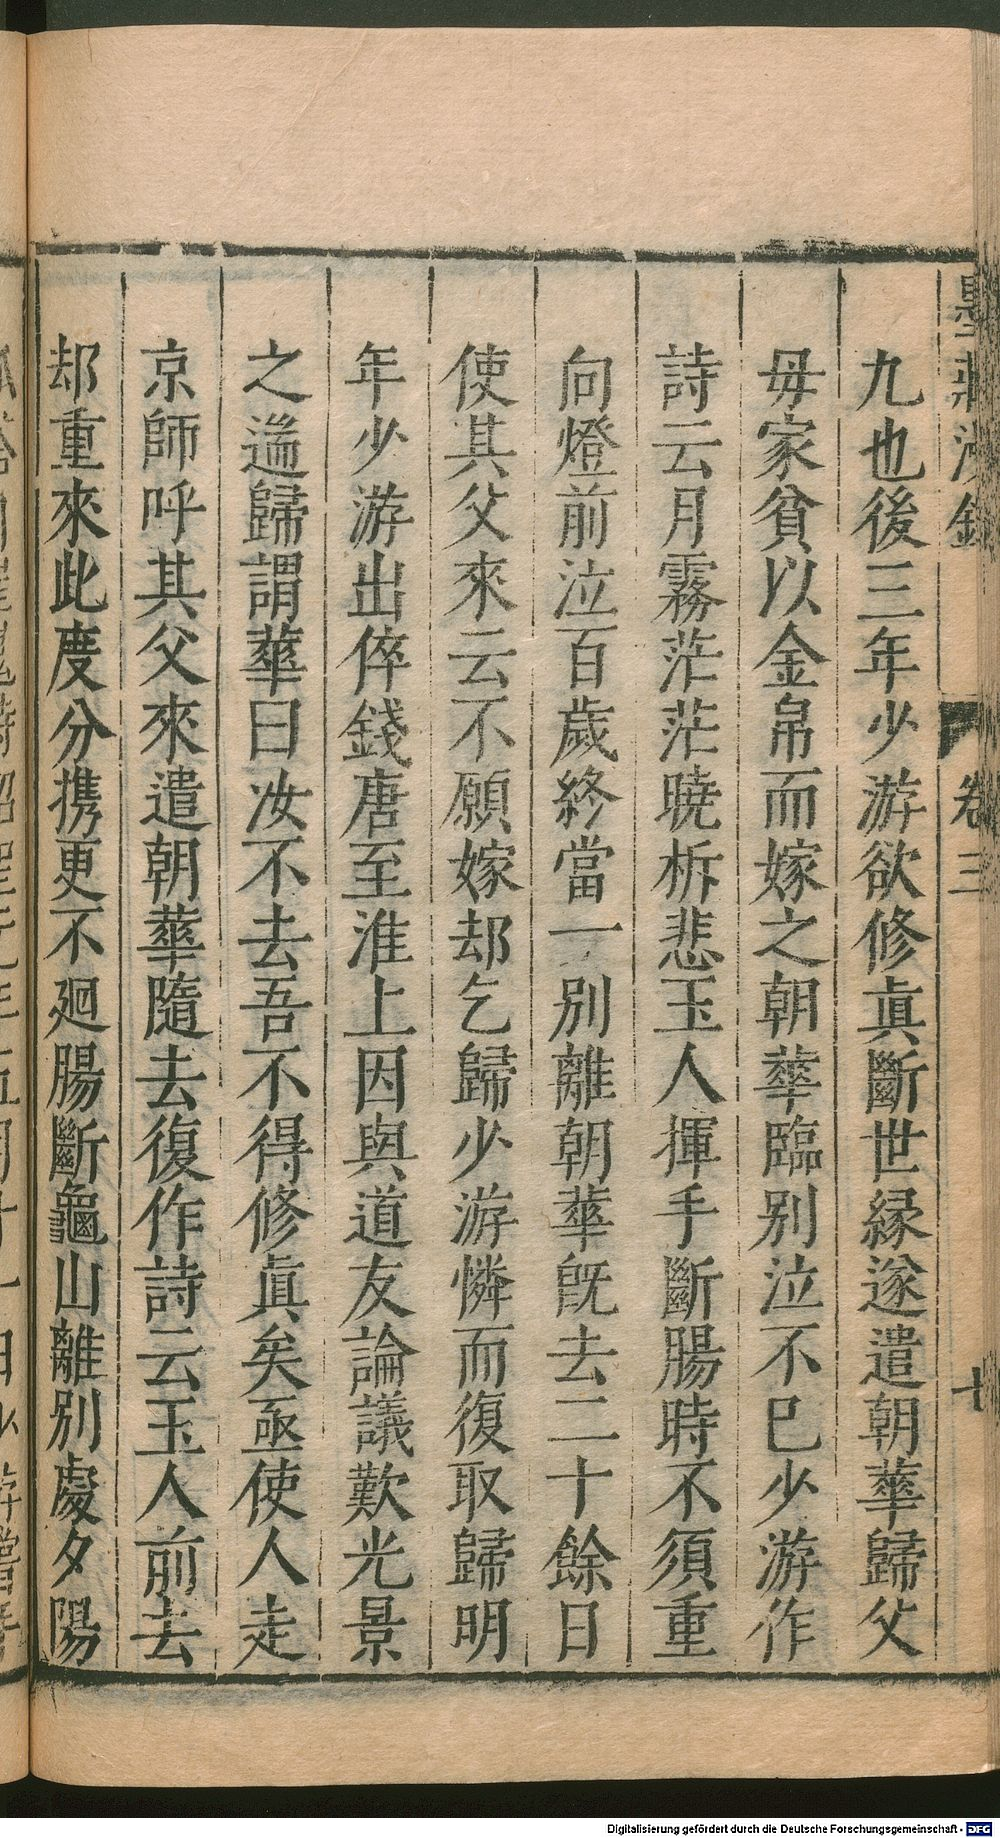 墨莊漫錄 卷三 十
九也後三年少游欲修眞斷世緣遂遣朝華歸父
毋家貧以金帛而嫁之朝華臨别泣不巳少游作
詩云月霧茫茫曉柝悲玉人揮手斷腸時不須重
向燈前泣百歲終當一别離朝華旣去二十餘日
使其父來云不願嫁却乞歸少游憐而復取歸明
年少游出倅錢唐至淮上因與道友論議歎光景
之遄歸謂華曰汝不去吾不得修眞矣亟使人走
京師呼其父來遣朝華隨去復作詩云玉人前去
却重來此度分携更不廻腸斷龜山離别處夕陽
Digitalisierung gefördert durch die Deutsche Forschungsgemeinschaft - DFG